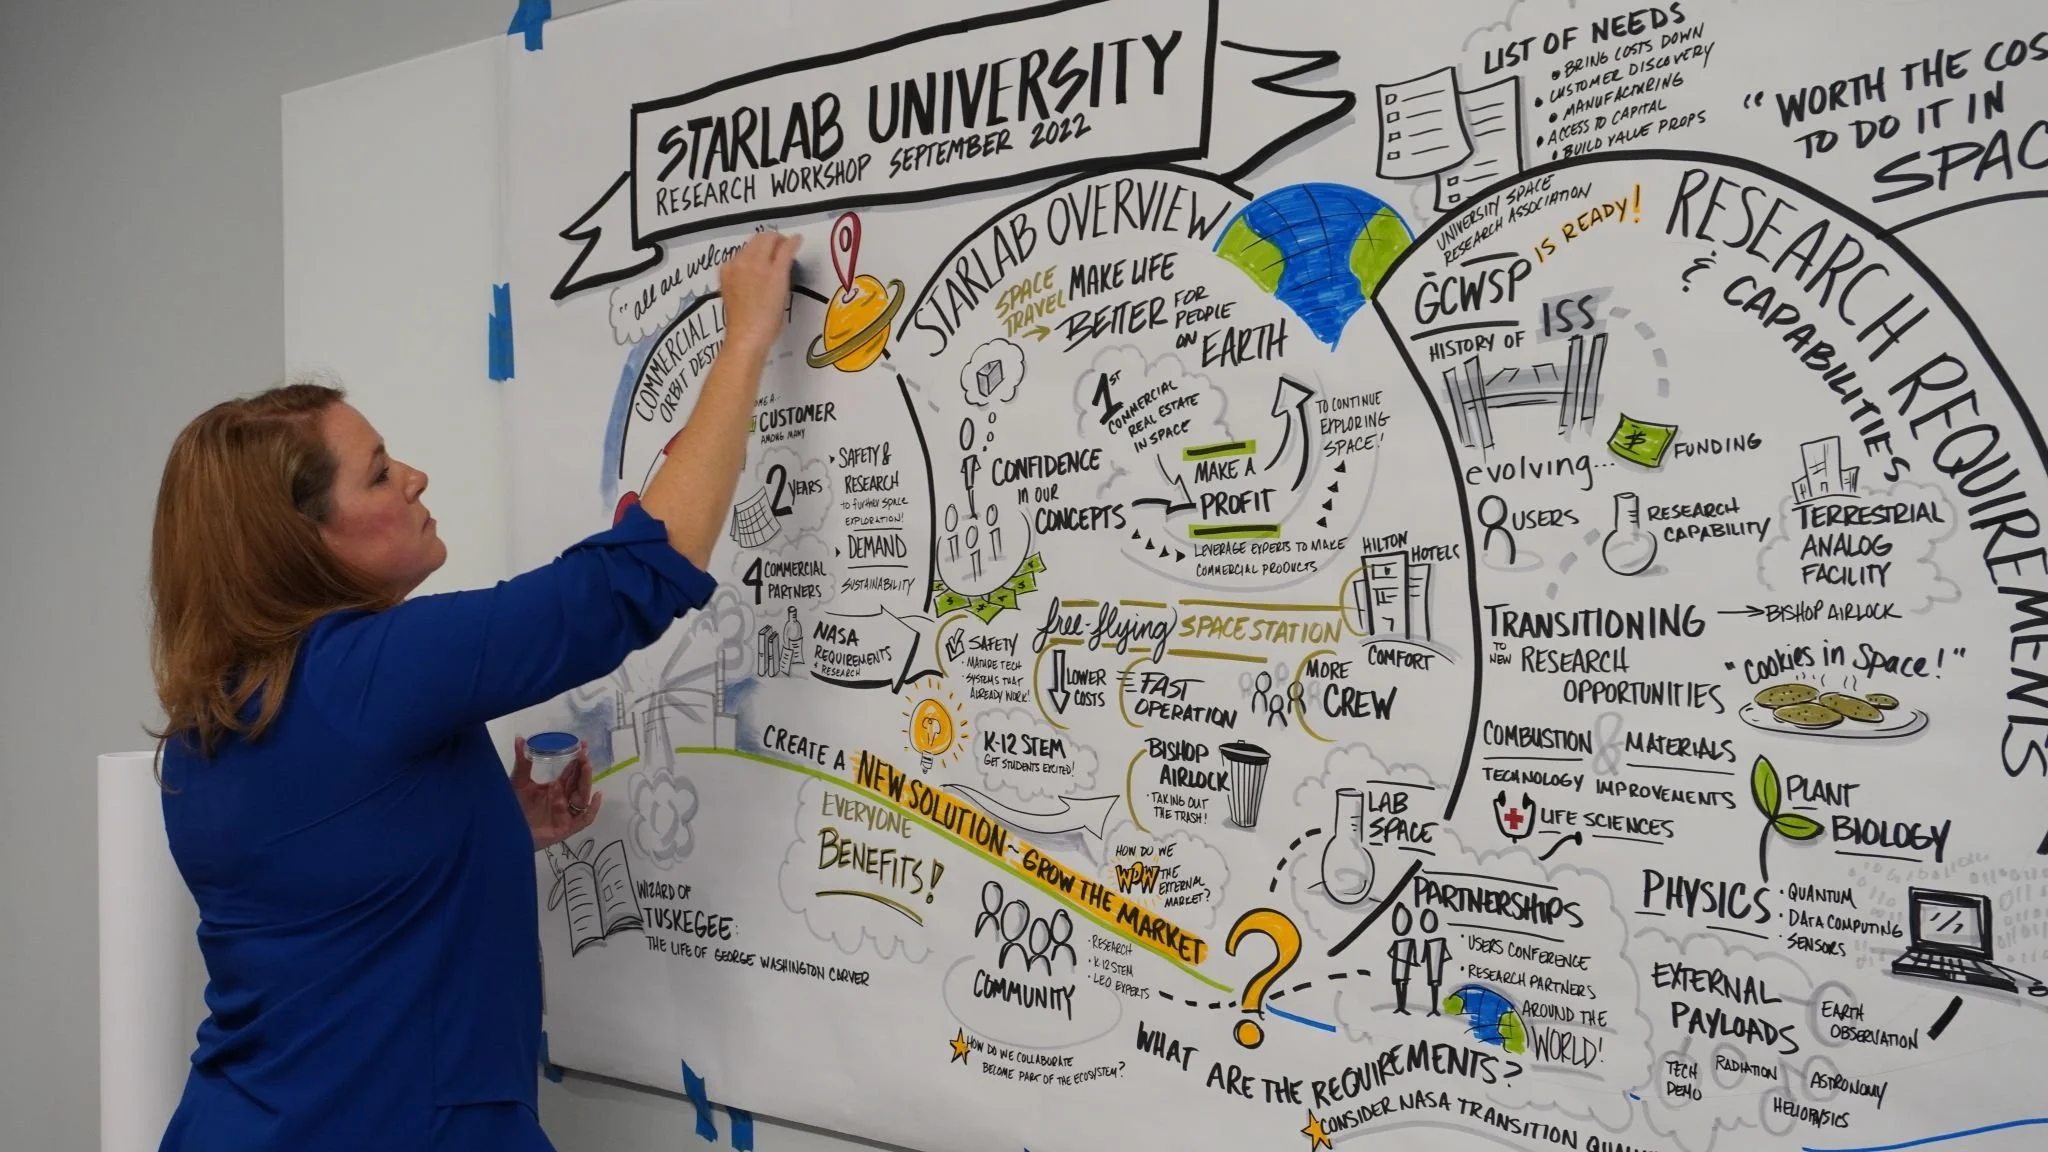 STARLAB UNIVERSITY
RESEARCH WORKSHOP SEPTEMBER 2022
"all are welcome"
COMMERCIAL
ORBIT
CUSTOMER
AMONG MANY
2 YEARS
4 COMMERCIAL
PARTNERS
SAFETY &
RESEARCH
to further space
EXPLORATION!
DEMAND
SUSTAINABILITY
NASA
REQUIREMENTS
& RESEARCH
STARLAB OVERVIEW
SPACE
TRAVEL
MAKE LIFE
BETTER FOR
PEOPLE
ON
EARTH
CONFIDENCE
IN OUR
CONCEPTS
1ST
COMMERCIAL
REAL ESTATE
IN SPACE
MAKE A
PROFIT
TO CONTINUE
EXPLORING
SPACE!
LEVERAGE EXPERTS TO MAKE
COMMERCIAL PRODUCTS
HILTON
HOTELS
COMFORT
free-flying SPACE STATION
SAFETY
• MATURE TECH
• SYSTEMS THAT
ALREADY WORK!
LOWER
COSTS
FAST
OPERATION
MORE
CREW
K-12 STEM
GET STUDENTS EXCITED!
BISHOP
AIRLOCK
• TAKING OUT
THE TRASH!
LAB
SPACE
CREATE A NEW SOLUTION ~ GROW THE MARKET
EVERYONE
BENEFITS!
HOW DO WE
WOW THE
EXTERNAL
MARKET?
WIZARD OF
TUSKEGEE:
THE LIFE OF GEORGE WASHINGTON CARVER
COMMUNITY
• RESEARCH
• K-12 STEM
• LEO EXPERTS
HOW DO WE COLLABORATE
BECOME PART OF THE ECOSYSTEM?
?
WHAT ARE THE REQUIREMENTS?
CONSIDER NASA TRANSITION
PARTNERSHIPS
• USERS CONFERENCE
• RESEARCH PARTNERS
AROUND THE
WORLD!
LIST OF NEEDS
• BRING COSTS DOWN
• CUSTOMER DISCOVERY
• MANUFACTURING
• ACCESS TO CAPITAL
• BUILD VALUE PROPS
"WORTH THE
TO DO IT IN
UNIVERSITY SPACE
RESEARCH ASSOCIATION
GCWSP IS READY!
RESEARCH REQUIREMENTS
& CAPABILITIES
HISTORY OF ISS
evolving...
FUNDING
USERS
RESEARCH
CAPABILITY
TERRESTRIAL
ANALOG
FACILITY
BISHOP AIRLOCK
TRANSITIONING
TO NEW RESEARCH
OPPORTUNITIES
"Cookies in Space!"
COMBUSTION & MATERIALS
TECHNOLOGY IMPROVEMENTS
LIFE SCIENCES
PLANT
BIOLOGY
PHYSICS
• QUANTUM
• DATA COMPUTING
• SENSORS
EXTERNAL
PAYLOADS
EARTH
OBSERVATION
TECH
DEMO
RADIATION
ASTRONOMY
HELIOPHYSICS